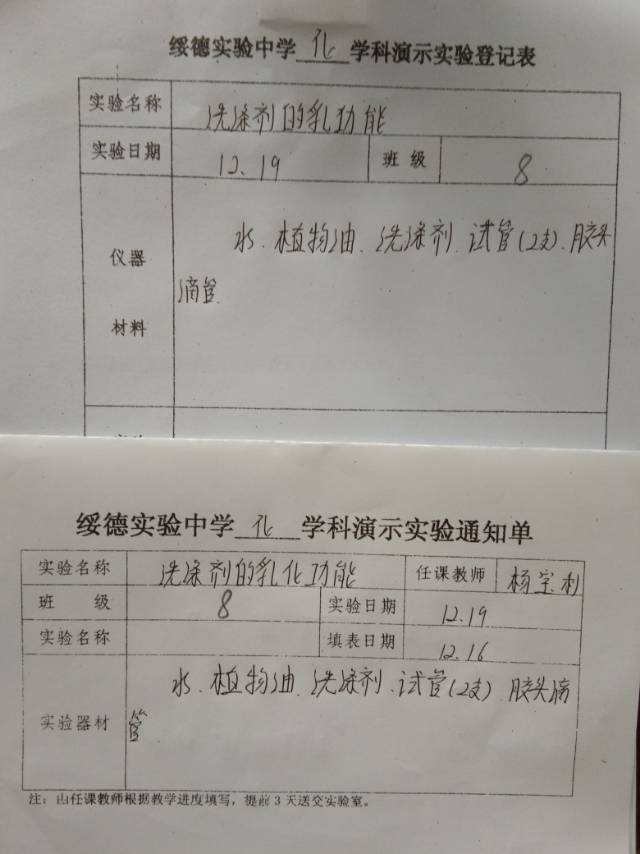 绥德实验中学 化 学科演示实验登记表
实验名称 洗涤剂的乳功能
实验日期 12.19 班级 8
仪器
材料
水.植物油.洗涤剂.试管(2支).胶头
滴管.
绥德实验中学 化 学科演示实验通知单
实验名称 洗涤剂的乳化功能 任课教师 杨宝利
班 级 8 实验日期 12.19
实验名称 填表日期 12.16
实验器材
水.植物油.洗涤剂.试管(2支).胶头滴
管
注：由任课教师根据教学进度填写，提前3天送交实验室。